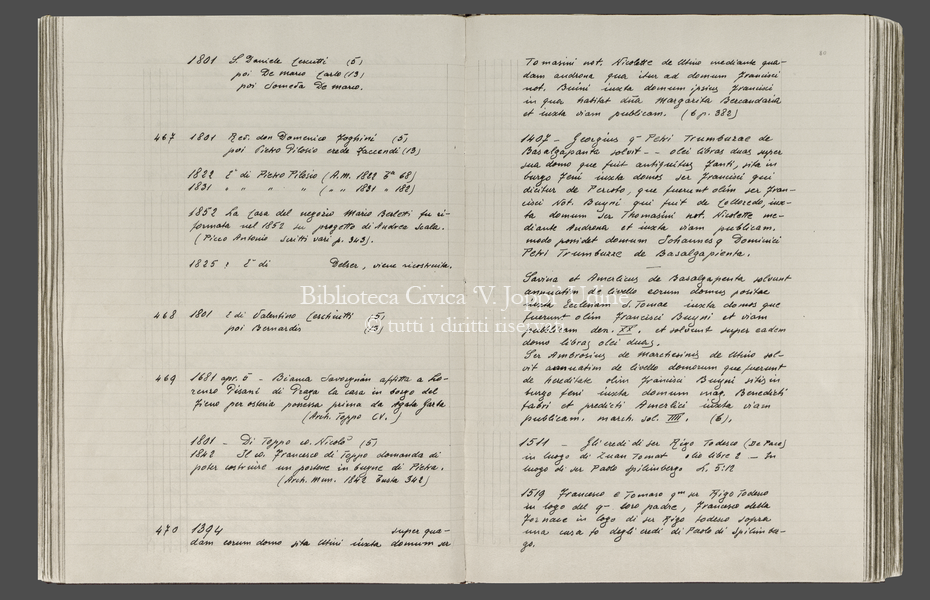 1801 S. Daniele Cescutti (5)
poi De marco Carlo (13)
poi Someda De marco.
467 1801 Rev. don Domenico Foghini (5)
poi Pietro Pilosio erede Zaccendi (13)
1822 E' di Pietro Pilosio (A.M. 1822 68)
1831 " " " " ( " " 1831 " 182)
1852 La casa del negozio Mario Berletti fu ri-
formata nel 1852 su progetto di Andrea Scala.
(Picco Antonio scritti vari p. 343).
1825 : E' di Delser, viene ricostruita.
468 1801 E' di Valentino Ceschiutti (5)
poi Bernardis
469 1681 apr. 5 - Bianca Savorgnan affitta a Lo-
renzo Pisani di Fraga la casa in borgo del
Fieno per osteria possessa prima da Agata Garta
(Arch. Toppo CV. )
1801 - Di Toppo co. Nicolò (5)
1842 Il co. Francesco di Toppo domanda di
poter costruire un portone in bugne di Pietra.
(Arch. Mun. 1842 busta 342)
470 1394 super qua-
dam eorum domo sita Utini iuxta domum ser
Tomasini not. Nicolette de Utino mediante qua-
dam androna qua itur ad domum Francisci
not. Buini iuxta domum ipsius Francisci
in qua habitat dña Margarita Bercandaria
et iuxta viam publicam. (6 p. 382)
1407 - Georgius q Petri Trumbuzae de
Basalgapanta solvit - - olei libras duas super
sua domo que fuit antiquitus Zanti, sita in
burgo Feni iuxta domos ser Francisci qui
dicitur de Percoto, que fuerunt olim ser Fran-
cisci Not. Buyni qui fuit de Colloredo, iux-
ta domum ser Thomasini not. Nicolette me-
diante Androna et iuxta viam publicam.
modo ponidet domum Johannes q Dominici
Petri Trumbuze de Basalgapienta.
Savina et Americus de Basalgapenta solvunt
annuatim de livello eorum domus positae
iuxta Ecclesiam S. Tomae iuxta domos que
fuerunt olim Francisci Buyni et viam
publicam den. XX. et solvunt super eadem
domo libras olei duas.
Ser Ambrosius de Marchesinis de Utino sol-
vit annuatim de livello domorum que fuerunt
de hereditate olim Francisci Buyni sitis in
burgo feni iuxta domum mag. Benedicti
fabri et predicti Americi iuxta viam
publicam. march. sol. IIII. (6).
1511 - Gli eredi di ser Rigo Todesco (De Paro)
in luogo di Zuan Tomat olio libre 2 - In
luogo di ser Paolo Spilimbergo L. 5:12
1519 Francesco e Tomaso qm ser Rigo Todesco
in logo del q- loro padre, Francesco della
Fornace in logo di ser Rigo todesco sopra
una casa fo degli eredi di Paolo di Spilimber-
go.
Biblioteca Civica V. Joppi Udine
© tutti i diritti riservati